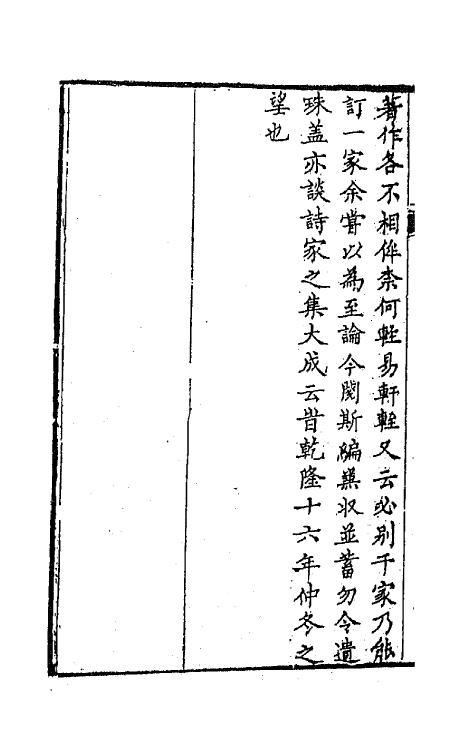 著作各不相侔柰何輕易軒輊又云必别千家乃能
訂一家余嘗以為至論今閱斯編兼収並蓄勿令遺
珠盖亦談詩家之集大成云旹乾隆十六年仲冬之
望也